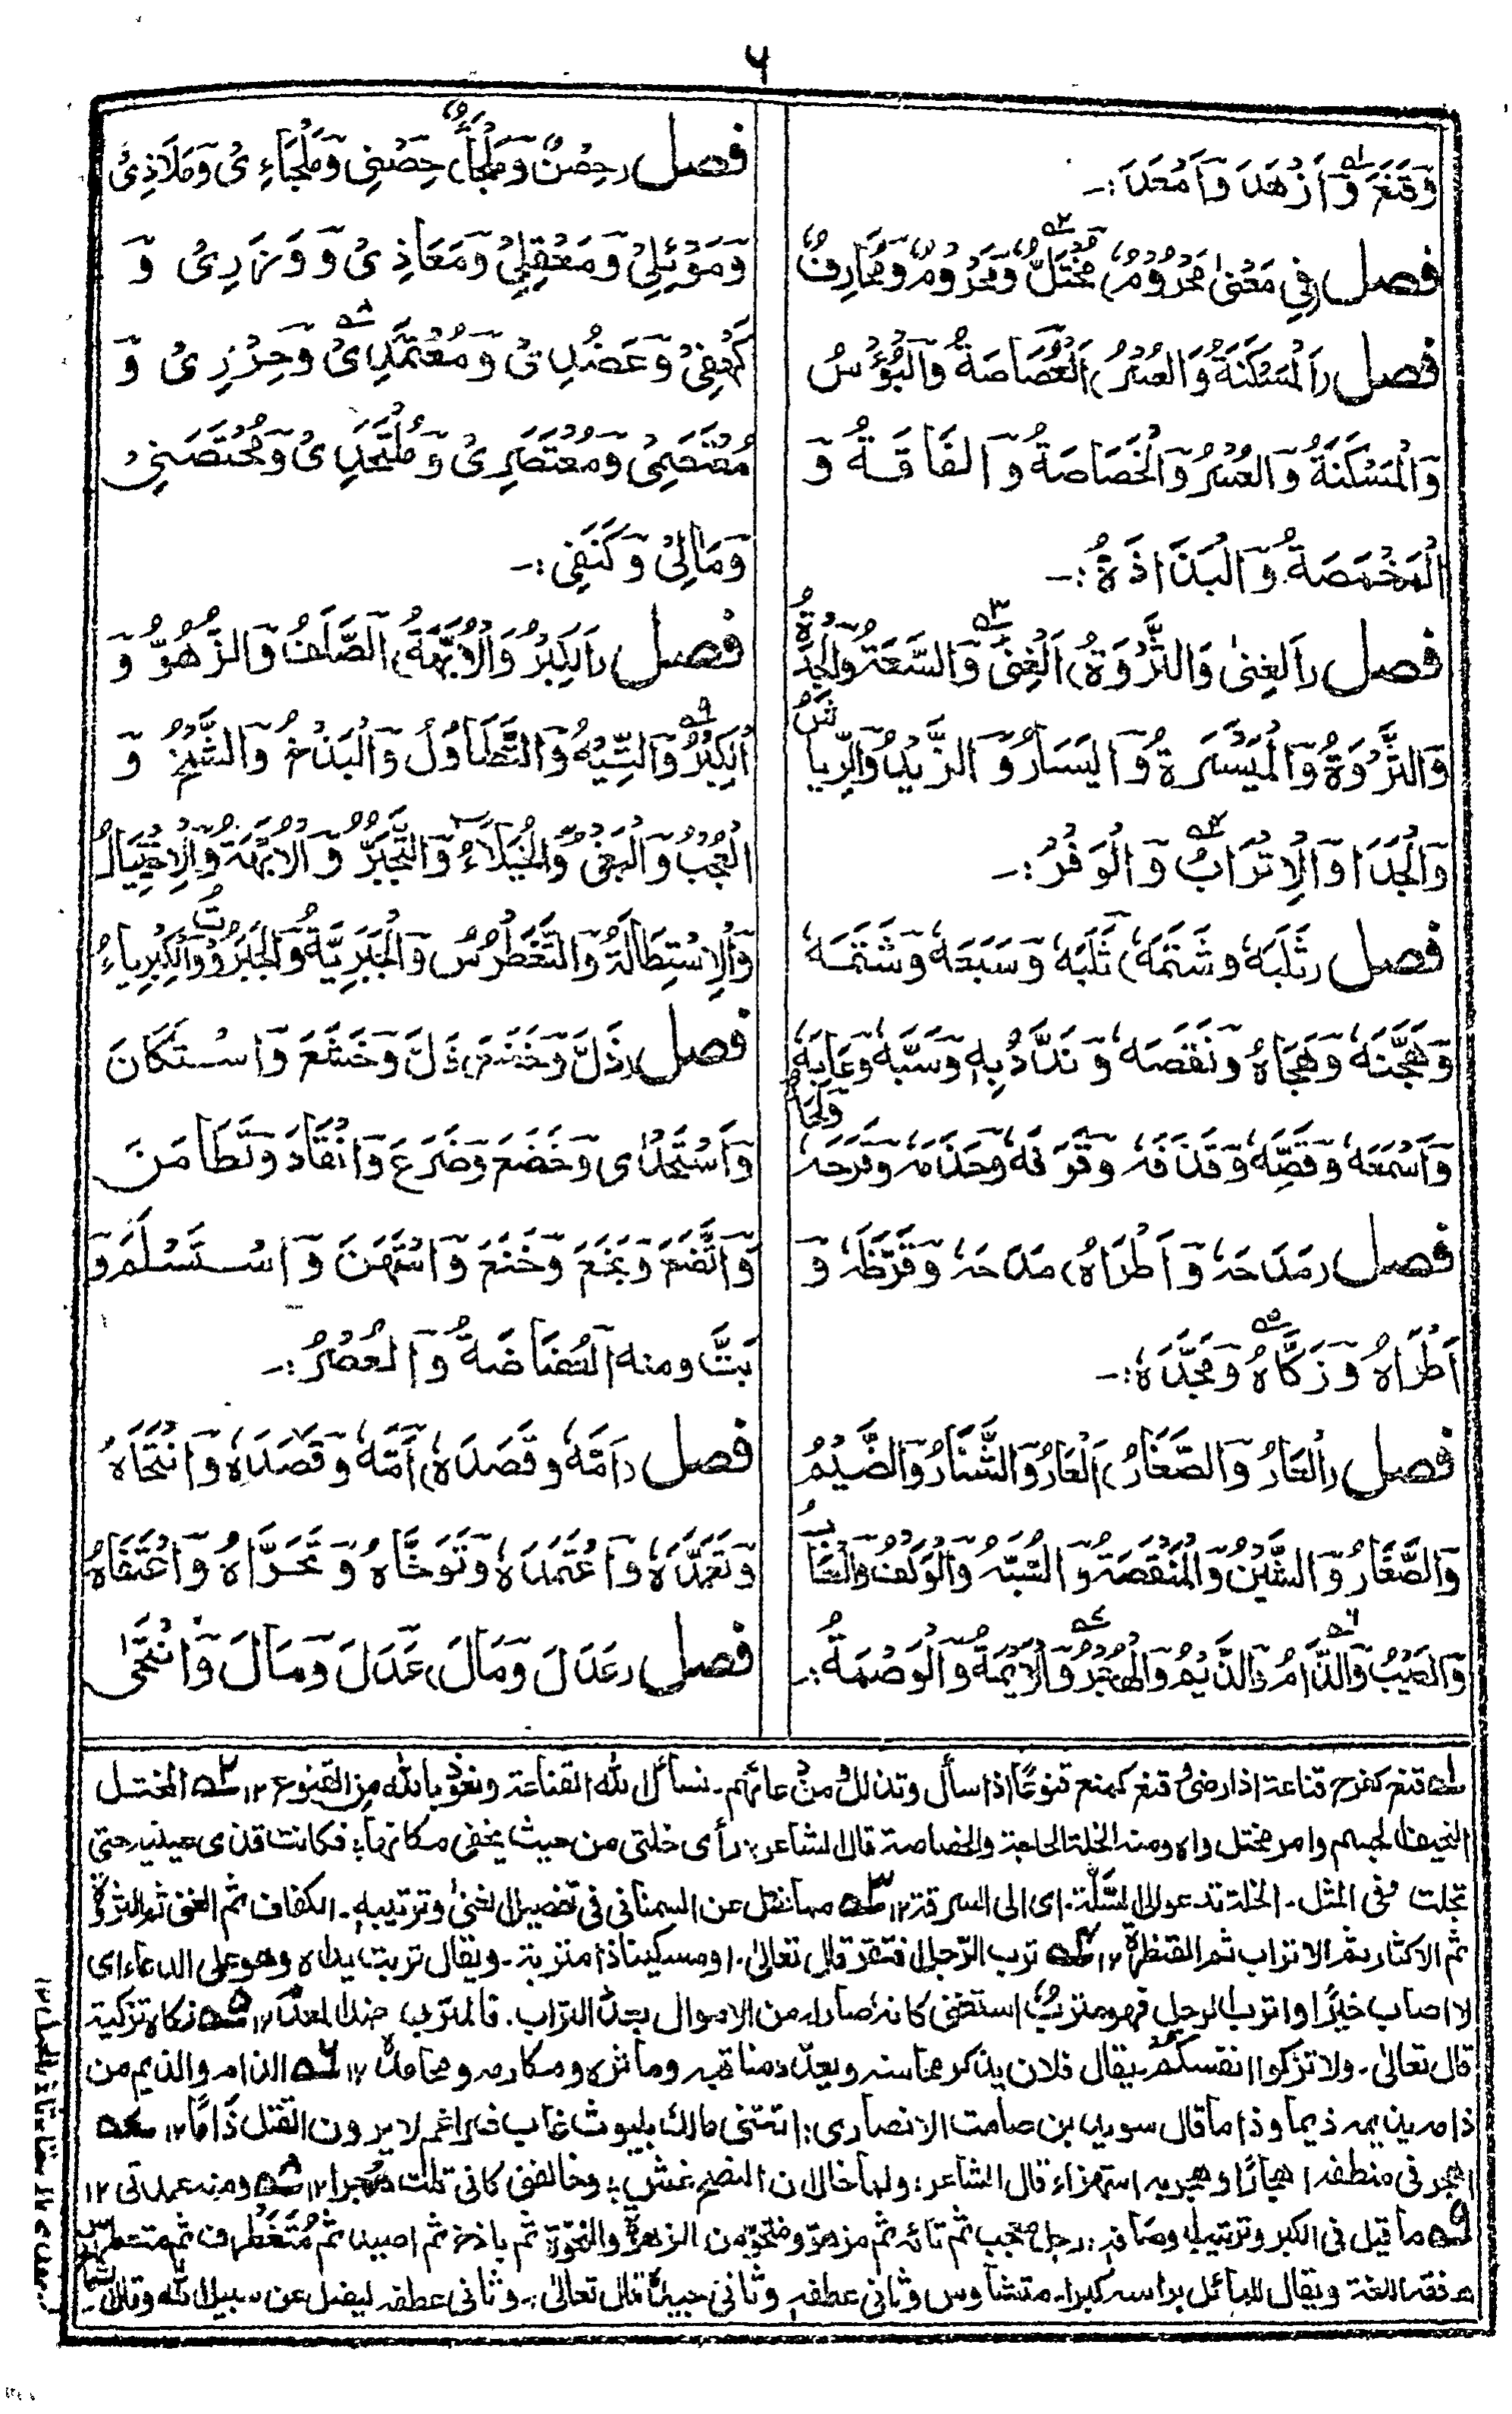 ٦
وَقَنَعَ وَأَزْهَدَ وَأَمْعَدَ :ـ
فصل (فِي مَعْنىٰ مَحْرُوْمٍ) مُخْتَلٌّ وَمَحْرُوْمٌ وَمُحَارِفٌ
فصل (اَلْمَسْكَنَةُ وَالْعُسْرُ) اَلْغَصَاصَةُ وَالْبُؤْسُ
وَالْمَسْكَنَةُ وَالْعُسْرُ وَالْخَصَاصَةُ وَالْفَاقَةُ وَ
الْمَخْمَصَةُ وَالْبَذَاذَةُ :ـ
فصل (اَلْغِنىٰ وَالثَّرْوَةُ) اَلْغِنىٰ وَالسَّعَةُ وَالْجِدَةُ
وَالثَّرْوَةُ وَالْمَيْسَرَةُ وَالْيَسَارُ وَالزَّيْدُ وَالرِّيَاشُ
وَالْجَدَا وَالْاِتْرَابُ وَالْوَفْرُ :ـ
فصل (ثَلَبَهٗ وَشَتَمَهٗ) ثَلَبَهٗ وَسَبَعَهٗ وَشَتَمَهٗ
وَهَجَّنَهٗ وَهَجَاهُ وَنَقَصَهٗ وَنَدَّدَ بِهٖ وَسَبَّهٗ وَعَابَهٗ وَلَحَاهُ
وَاَسْمَعَهٗ وَقَصَّهٗ وَقَذَفَهٗ وَقَرَفَهٗ وَجَذَمَهٗ وَقَرَحَهٗ
فصل (مَدَحَهٗ وَاَطْرَاهُ) مَدَحَهٗ وَقَرَّظَهٗ وَ
اَطْرَاهُ وَزَكَّاهُ وَمَجَّدَهٗ :ـ
فصل (اَلْعَارُ وَالصَّغَارُ) اَلْعَارُ وَالشَّنَارُ وَالضَّيْمُ
وَالصَّغَارُ وَالشَّيْنُ وَالْمَنْقَصَةُ وَالسُّبَّةُ وَالْوَكَفُ
وَالْعَيْبُ وَالذَّامُ وَالذَّيْمُ وَالْهُجْرُ وَالْوَصْمَةُ :ـ
فصل (حِصْنٌ وَمَلْجَأٌ) حِصْنِى وَمَلْجَاءِىْ وَمَلَاذِىْ
وَمَوْئِلِىْ وَمَعْقِلِىْ وَمَعَاذِىْ وَوَزَرِىْ وَ
كَهْفِىْ وَعَضُدِىْ وَمُعْتَمَدِىْ وَحِرْزِىْ وَ
مُعْتَصَمِىْ وَمُعْتَصَرِىْ وَمُلْتَحَدِىْ وَمُحْتَصَنِىْ
وَمَاٰلِىْ وَكَنَفِى :ـ
فصل (اَلْكِبْرُ وَالْاُبَّهَةُ) اَلصَّلَفُ وَالزَّهْوُ وَ
الْكِبْرُ وَالتِّيْهُ وَالتَّطَاوُلُ وَالْبَذَخُ وَالشَّمْخُ وَ
الْعُجْبُ وَالْبَغْىُ وَالْخُيَلَاءُ وَالتَّجَبُّرُ وَالْاُبَّهَةُ وَالْاِخْتِيَالُ
وَالْاِسْتِطَالَةُ وَالتَّغَطْرُسُ وَالْجَبَرِيَّةُ وَالْجَبَرُوْتُ وَالْكِبْرِيَاءُ
فصل (ذَلَّ وَخَشَعَ) ذَلَّ وَخَشَعَ وَاسْتَكَانَ
وَاسْتَخْذٰى وَخَضَعَ وَضَرَعَ وَانْقَادَ وَتَطَامَنَ
وَاتَّضَعَ وَبَخَعَ وَخَنَعَ وَامْتَهَنَ وَاسْتَسْلَمَ وَ
ومنه الْغَضَاضَةُ :ـ
فصل (اَمَّهٗ وَقَصَدَهٗ) اَمَّهٗ وَقَصَدَهٗ وَانْتَحَاهُ
وَتَعَمَّدَهٗ وَاعْتَمَدَهٗ وَتَوَخَّاهُ وَتَحَرَّاهُ وَاعْتَفَاهُ
فصل (عَدَلَ وَمَالَ) عَدَلَ وَمَالَ وَانْتَحٰى
قنع كفرح قناعة اذا رضى قنع كمنع قنوعًا اذا سأل وتذلل ومن دعائهم ـ نسأل الله القناعة ونعوذ بالله من القنوع ١٢ المختل
النحيف الجسم وامر مختل واه ومنه الخلة الحاجة والخصاصة قال الشاعر : رأى خلتى من حيث يخفى مكانها : فكانت قذى عينيه حتى
تجلت وفى المثل ـ الخلة تدعو الى السلة ـ اى الى السرقة ١٢ مما نقل عن السمنانى فى تفصيل الغنىٰ وترتيبه ـ الكفاف ثم الغنى ثم الثروة
ثم الاكثار ثم الاتراب ثم القنطرة ١٢ ترب الرجل افتقر قال تعالىٰ ـ او مسكينا ذا متربة ـ ويقال تربت يداه وهو على الدعاء اى
لا اصاب خيرًا واترب الرجل فهو مترب استغنى كانه صار له من الاموال بعدد التراب ـ ١٢ زكاه تزكية
قال تعالىٰ ـ ولا تزكوا انفسكم ـ يقال فلان يذكر محاسنه ويعدد مناقبه ومآثره ومكارمه ومحامده ١٢ الذام والذيم من
ذامه يذيمه ذيما وذاما قال سويد بن صامت الانصارى :
اهجر فى منطقه اهجارًا وهجر به استهزاء قال الشاعر : ١٢ ومنه عمدتى ١٢
ما قيل فى الكبر وترتيب اوصافه : رجل معجب ثم تائه ثم مزهو ومنخو من الزهو والنخوة ثم باذخ ثم اصيد ثم متغطرف ثم متغطرس
فقه اللغة ويقال للمائل براسه كبرا ـ متشاوس وثانى عطفه وثانى جيده قال تعالىٰ : ـ وثانى عطفه ليضل عن سبيل الله وقال